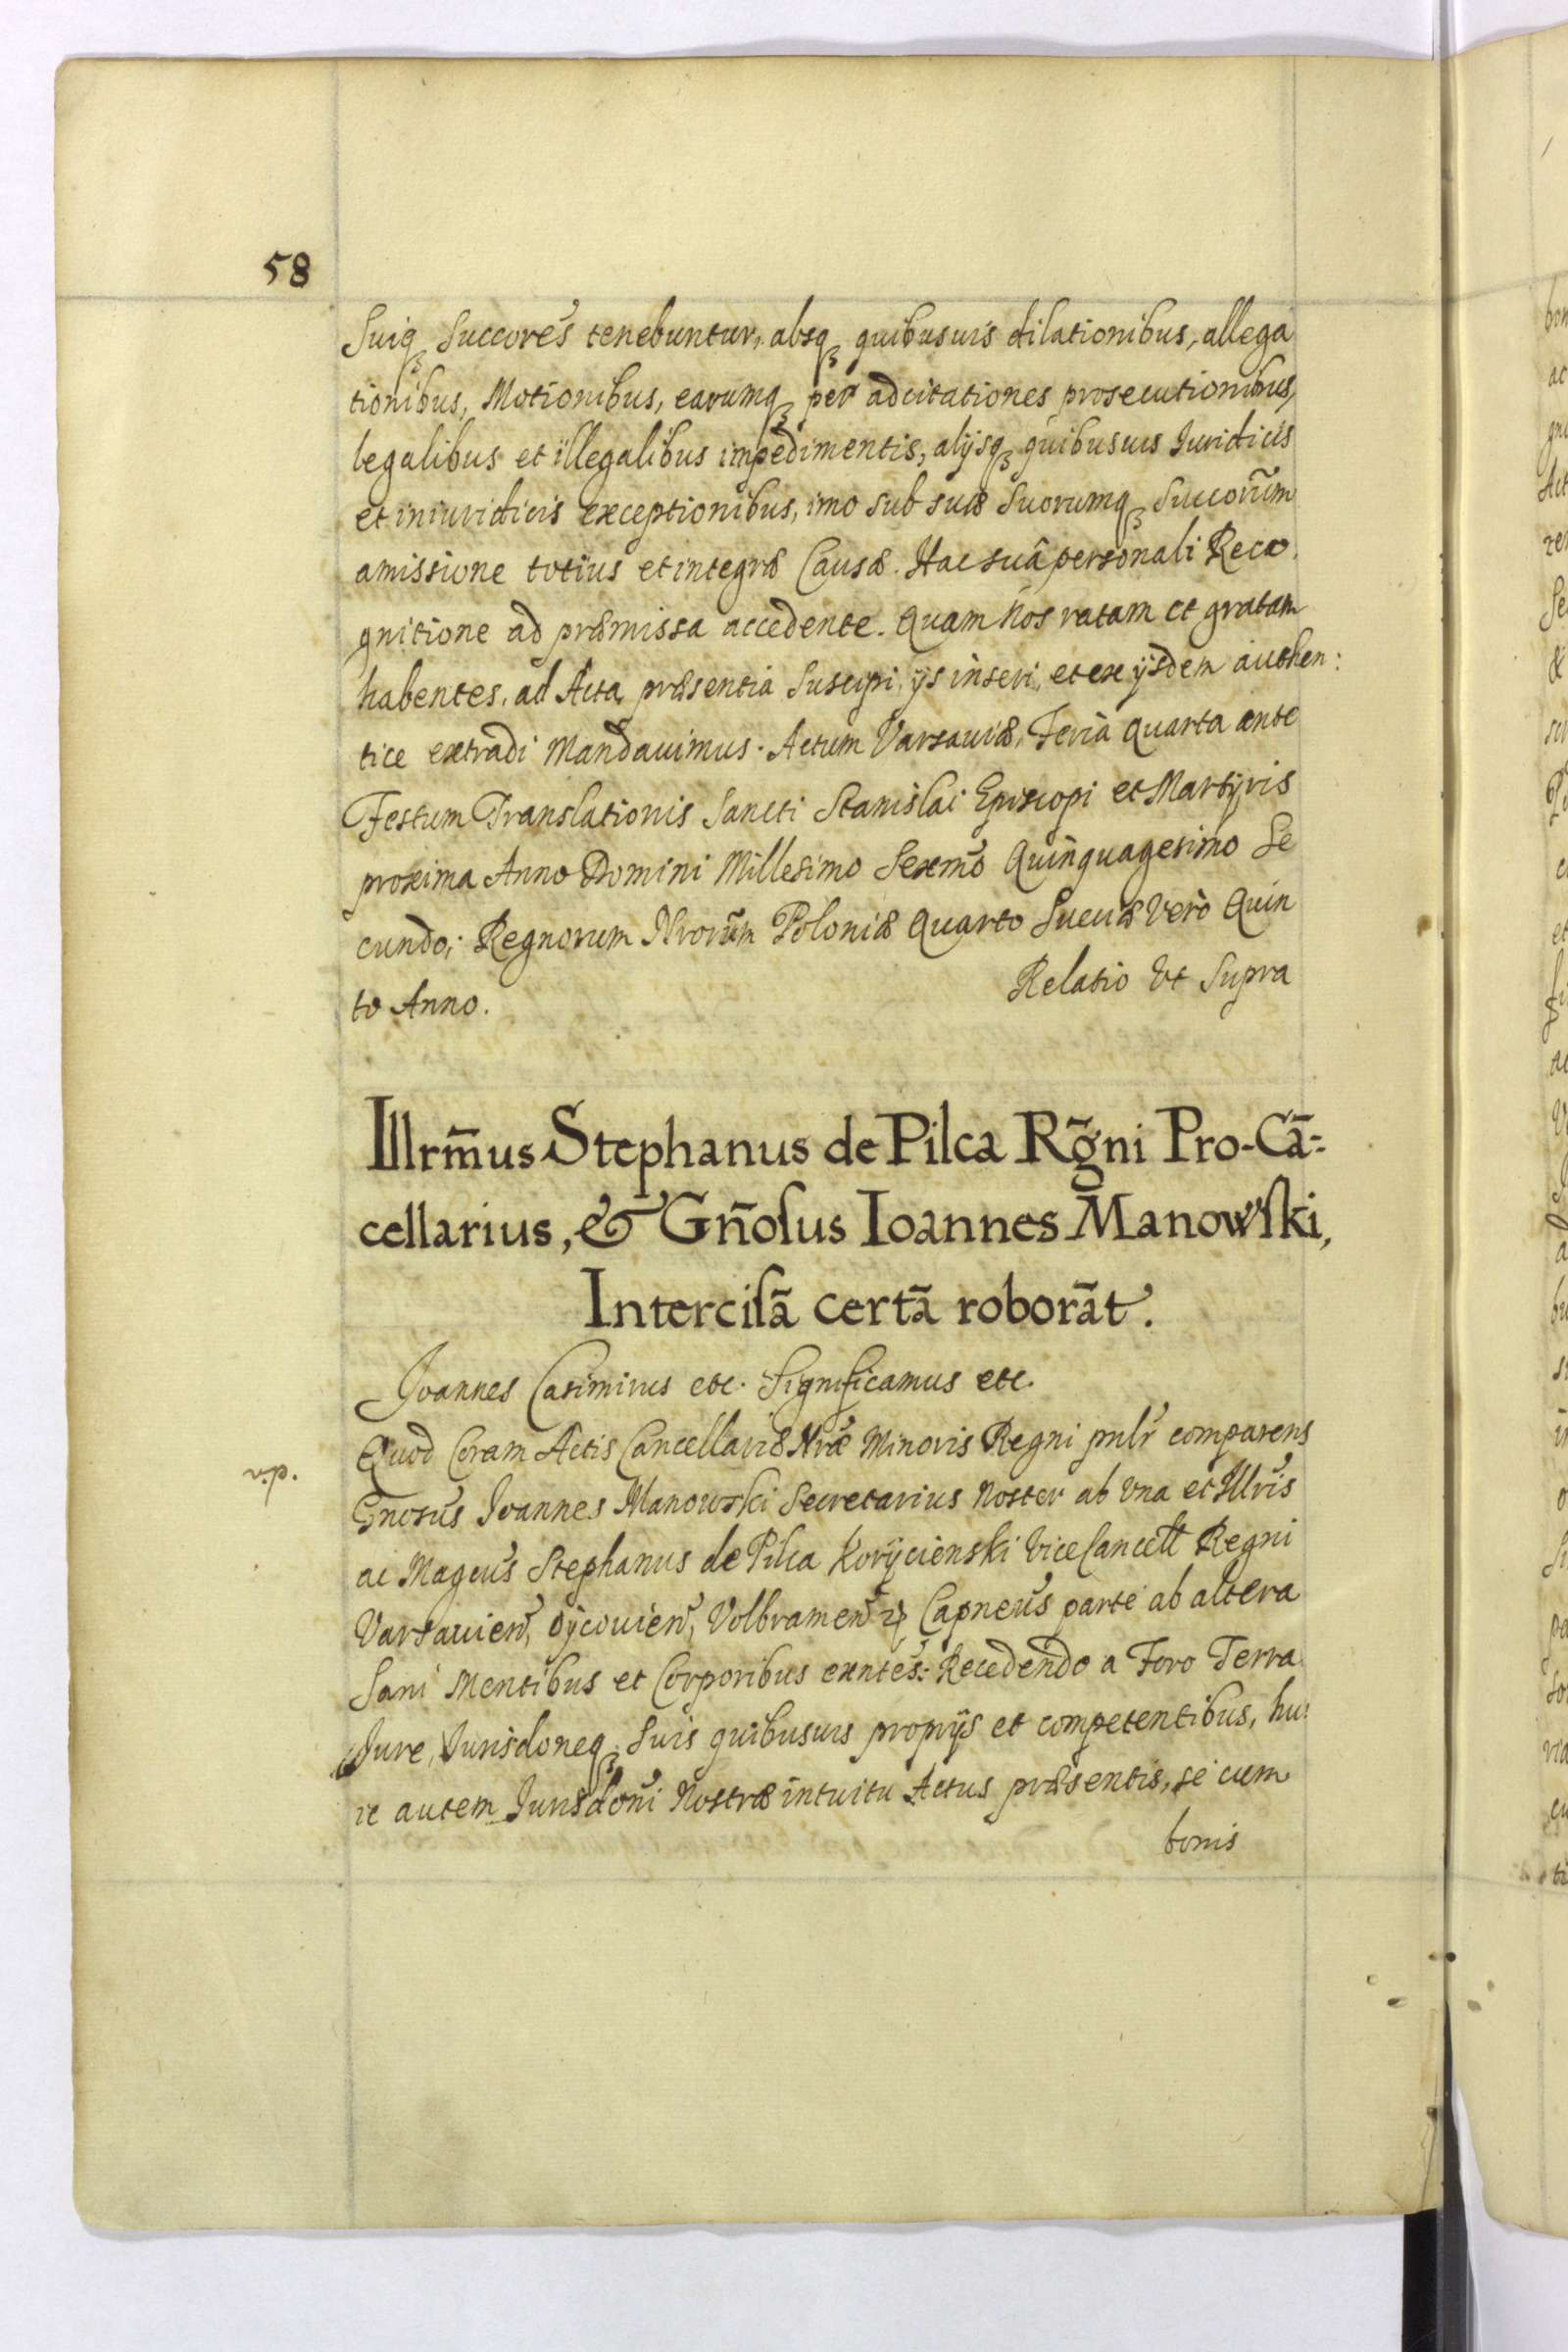 58
Suiq₃ Succores tenebuntur, absq₃ quibusuis dilationibus, allega
tionibus, Motionibus, earumq₃ per adcitationes prosecutionibus,
legalibus et illegalibus impedimentis, alijsq₃ quibusuis Iuridicis
et iniuridicis exceptionibus, imo sub suæ Suorumq₃ Succorũm
amissione totius et integræ Causæ. Hac suâ personali Reco
gnitione ad præmissa accedente. Quam Nos ratam et gratam
habentes, ad Acta præsentia Suscipi, ijs inseri, et ex ijsdem authen:
tice extradi Mandauimus. Actum Varsauiæ, Feria Quarta ante
Festum Translationis Sancti Stanislai Episcopi et Martyris
proxima Anno Domini Millesimo Sexmo Quinquagesimo Se
cundo; Regnorum Nrorũm Poloniæ Quarto Sueciæ Vero Quin
to Anno.
Relatio Vt Supra
Illrm̃us Stephanus de Pilca Rg̃ni Pro-Cã-
cellarius, & Gñosus Ioannes Manowski,
Intercisã certã roborãt.
Joannes Casimirus etc. Significamus etc.
Quod Coram Actis Cancellariæ Nræ Minoris Regni pnlr comparens
Gnosus Joannes Manowski Secretarius Noster ab Vna et Illris
ac Magcus Stephanus de Pilca Korycienski ViceCancell Regni
Varsauien, Oycouien, Volbramen Capneus parte ab altera
Sani Mentibus et Corporibus exntes: Recedendo a Foro Terra
Jure, Jurisdoneq₃ Suis quibusuis proprijs et competentibus, hu:
ic autem Jurisdoni Nostræ intuitu Actus præsentis, se cum
bonis